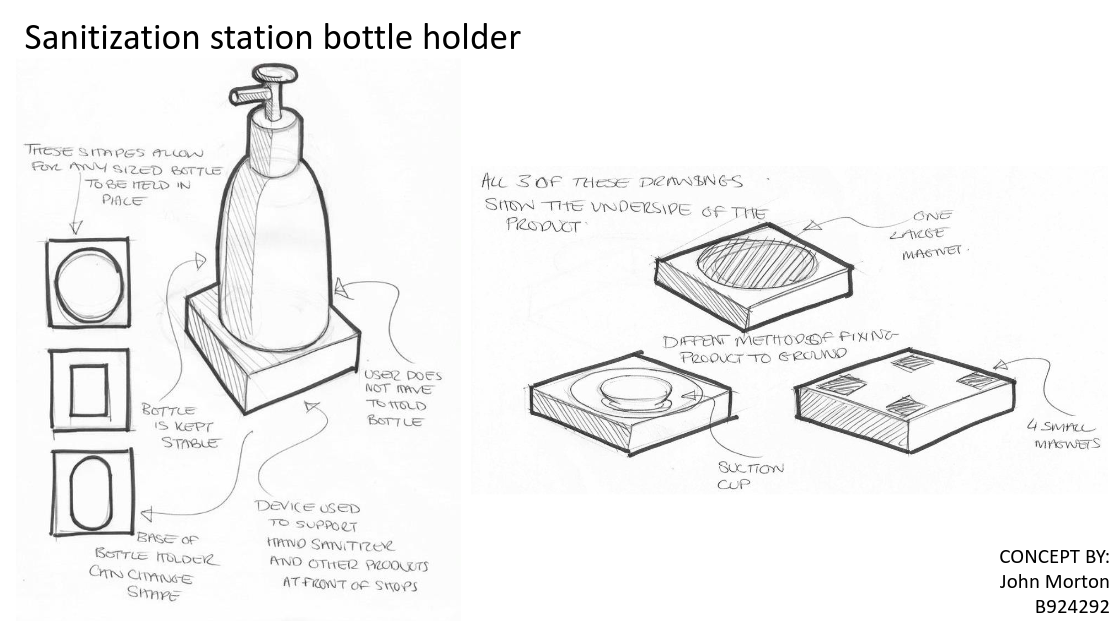 Sanitization station bottle holder
THESE SHAPES ALLOW
FOR ANY SIZED BOTTLE
TO BE HELD IN
PLACE
BOTTLE
IS KEPT
STABLE
USER DOES
NOT HAVE
TO HOLD
BOTTLE
BASE OF
BOTTLE HOLDER
CAN CHANGE
SHAPE
DEVICE USED
TO SUPPORT
HAND SANITIZER
AND OTHER PRODUCTS
AT FRONT OF SHOPS
ALL 3 OF THESE DRAWINGS
SHOW THE UNDERSIDE OF THE
PRODUCT
ONE
LARGE
MAGNET.
DIFFENT METHODS OF FIXING
PRODUCT TO GROUND
SUCTION
CUP
4 SMALL
MAGNETS
CONCEPT BY:
John Morton
B924292